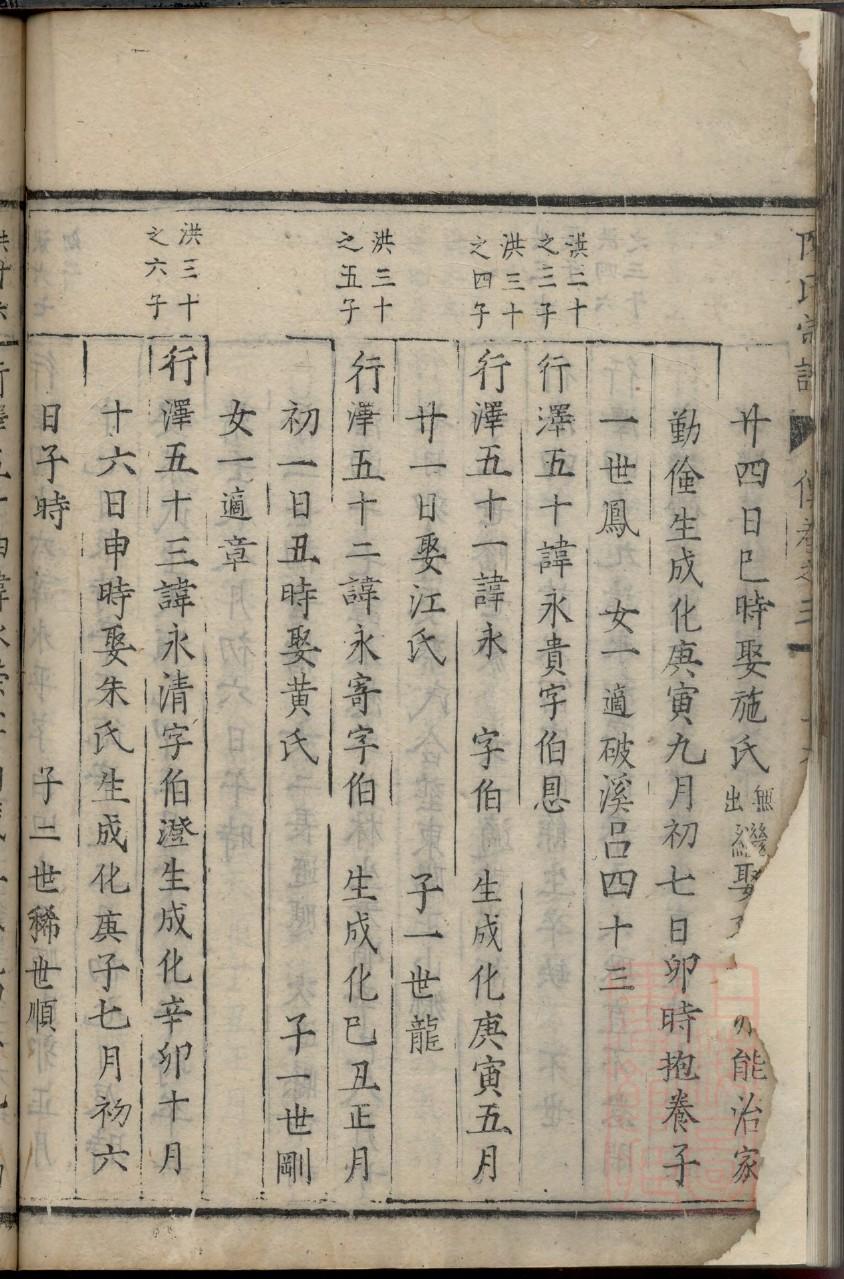 廿四日巳時娶施氏無出繼娶能治家
勤儉生成化庚寅九月初七日卯時抱養子
一世鳳 女一適破溪呂四十三
洪二十之三子
行澤五十諱永貴字伯恩
洪三十之四子
行澤五十一諱永 字伯 生成化庚寅五月
廿一日娶江氏 子一世龍
洪三十之五子
行澤五十二諱永寄字伯 生成化巳丑正月
初一日丑時娶黃氏 子一世剛
女一適章
洪三十之六子
行澤五十三諱永清字伯澄生成化辛卯十月
十六日申時娶朱氏生成化庚子七月初六
日子時 子二世稀世順